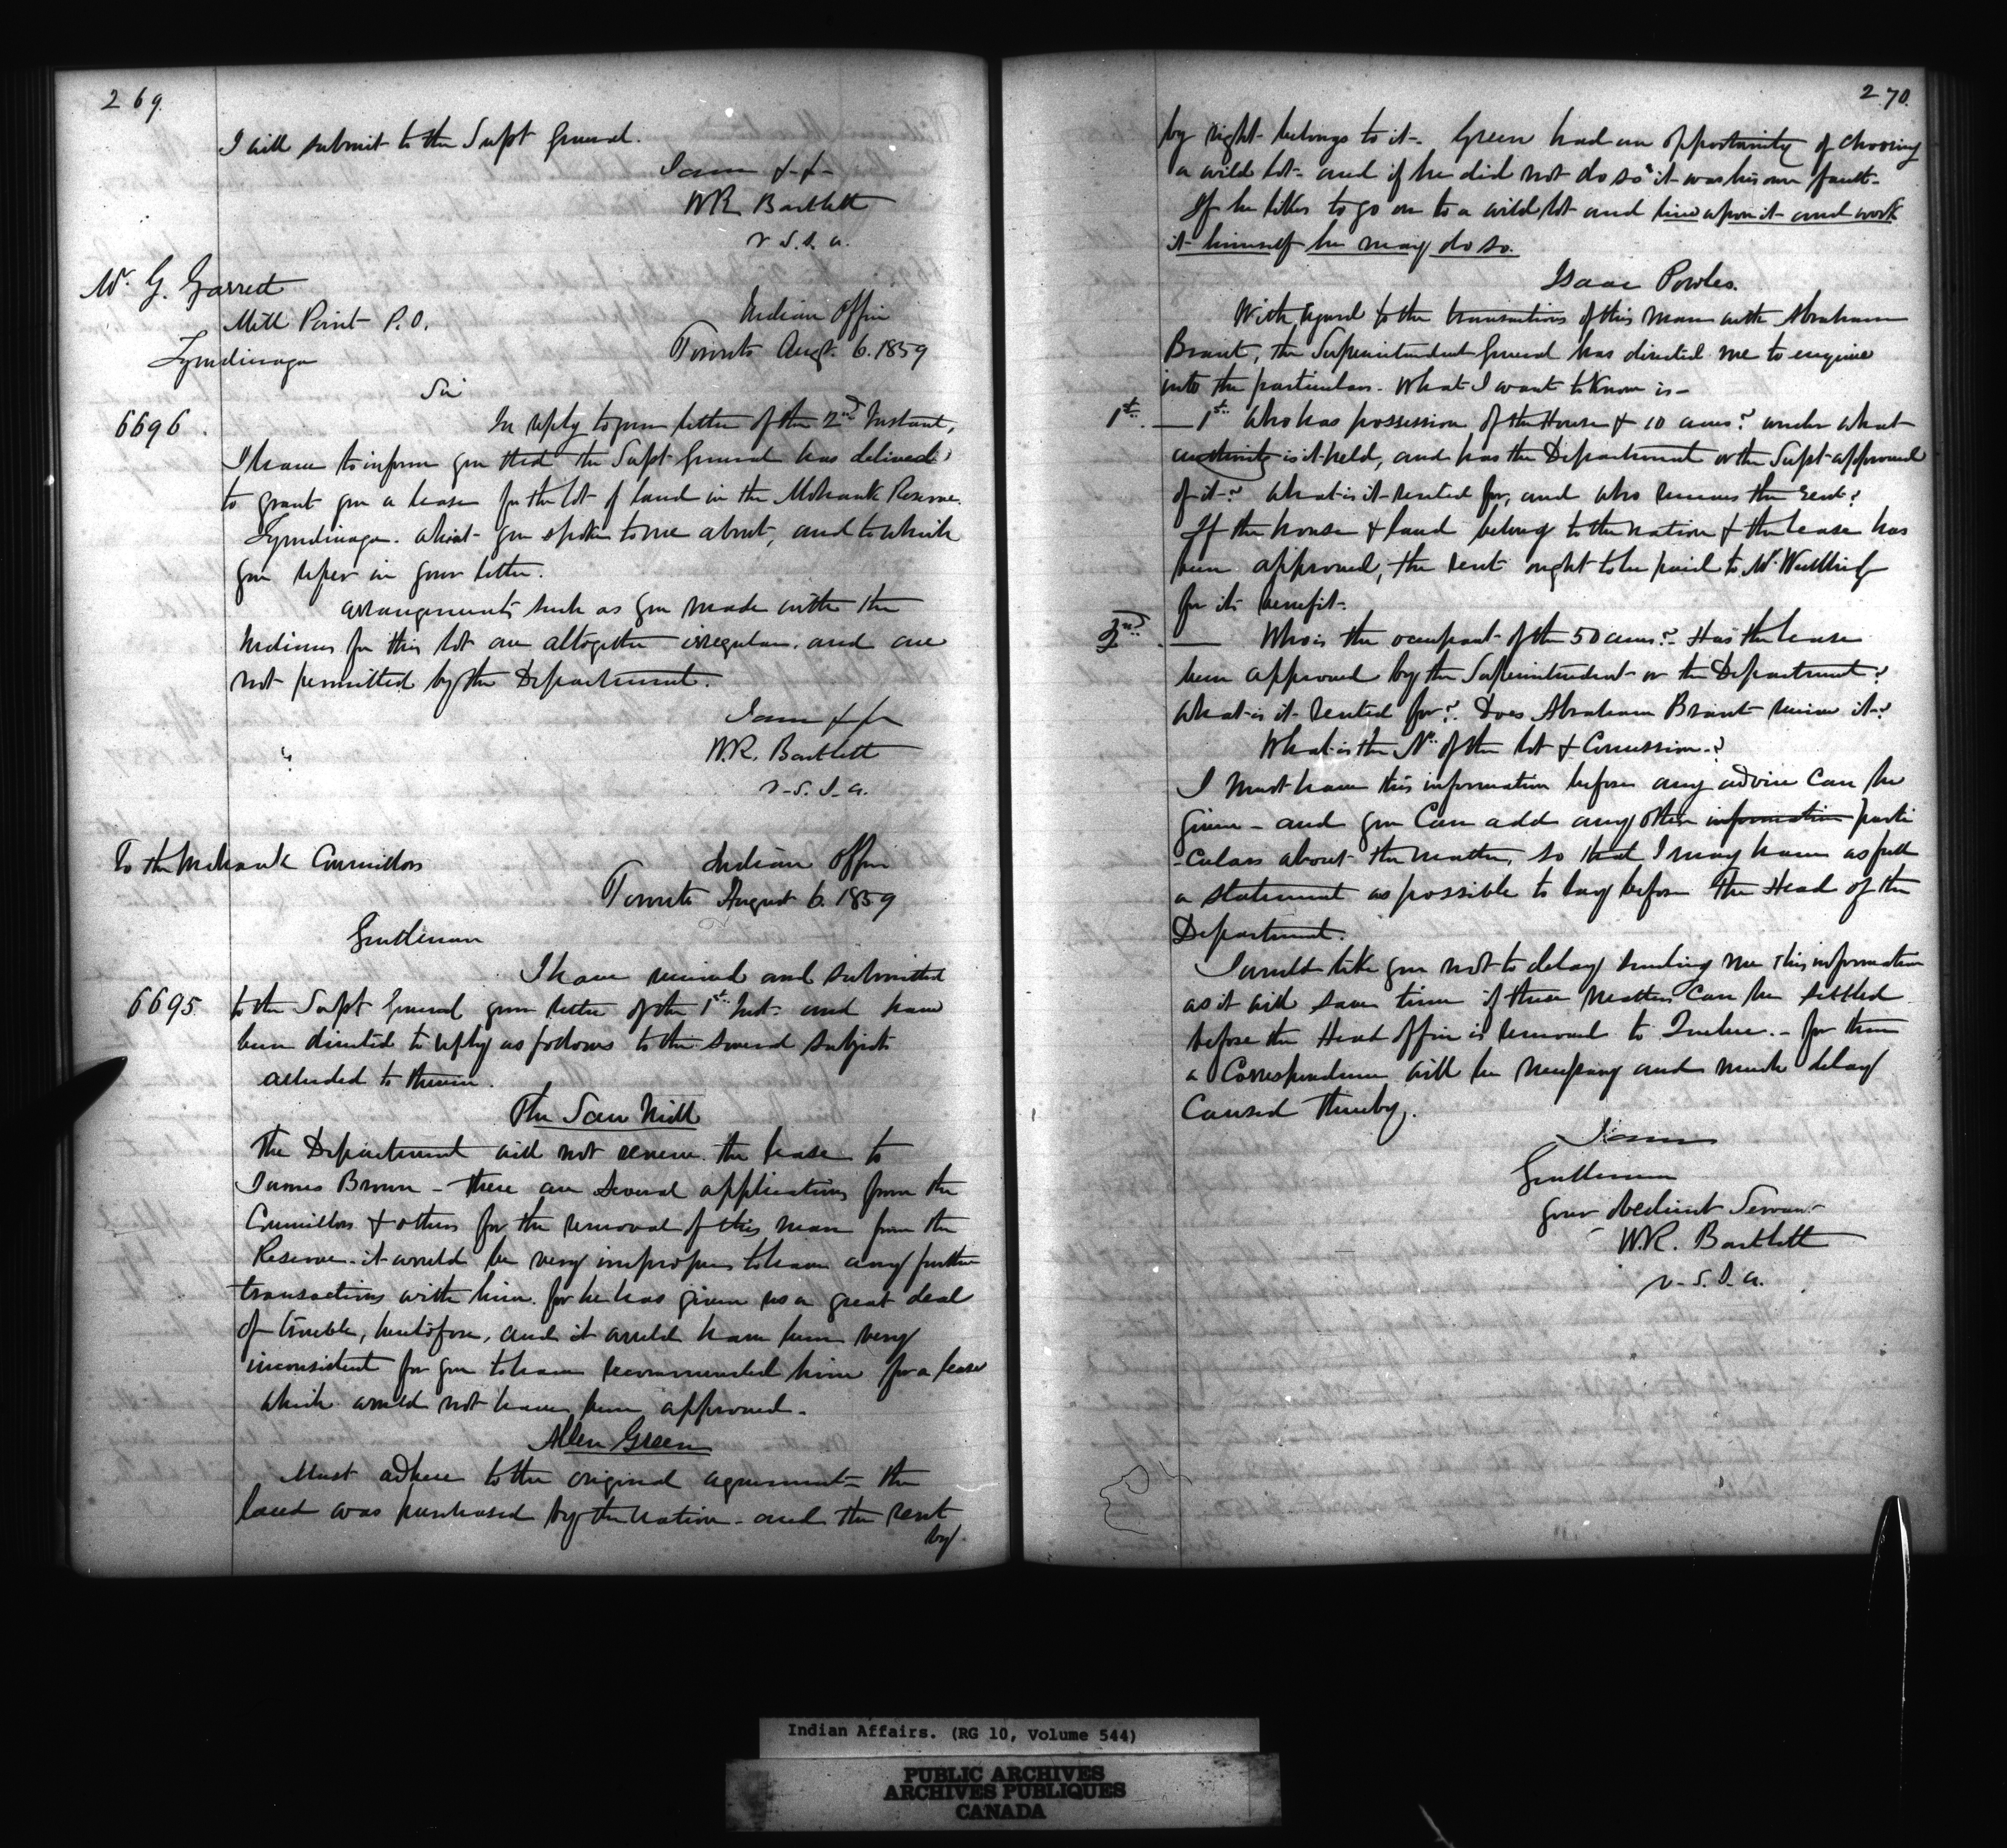 269.
I will submit to the Supt General.
I am &c &c
W R Bartlett
V. S. I. A.
Mr. G. Garrett
Mill Point P.O.
Tyendinaga
Indian Office
Toronto Augt. 6. 1859
Sir
6696.
In reply to your letter of the 2nd Instant,
I have to inform you that the Supt General has declined
to grant you a lease for the lot of land in the Mohawk Reserve
Tyendinaga. which you spoke to me about, and to which
you refer in your letter.
Arrangements such as you made with the
Indians for this lot are altogether irregular, and are
not permitted by the Department.
I am &c &c
W.R. Bartlett
V. S. I. A.
To the Mohawk Councillors
Indian Office
Toronto August 6. 1859
Gentlemen
I have received and submitted
6695.
to the Supt General your letter of the 1st Inst. and have
been directed to reply as follows to the several subjects
alluded to therein.
The Saw Mill
The Department will not renew the lease to
James Brown – there are several applications from the
Councillors & others for the removal of this man from the
Reserve. it would be very improper to have any further
transactions with him. for he has given us a great deal
of trouble, heretofore, and it would have been very
inconsistent for you to have recommended him for a lease
which would not have been approved.
Allen Green
Must adhere to the original agreement – the
land was purchased by the nation – and the rent
by
270.
by right belongs to it – Green had an opportunity of choosing
a wild lot – and if he did not do so it was his own fault –
If he likes to go on to a wild lot and live upon it and work
it himself he may do so.
Isaac Powles.
With regard to the transactions of this man with Abraham
Brant, the Superintendent General has directed me to enquire
into the particulars. What I want to know is –
1st. – 1st. Who has possession of the House & 10 acres? under what
authority is it held, and has the Department or the Supt approved
of it? What is it rented for, and who receives the rent?
If the house & land belong to the nation & the lease has
been approved, the rent ought to be paid to Mr.
for its benefit.
2nd. – Who is the occupant of the 50 acres? Has the lease
been approved by the Superintendent or the Department?
What is it rented for? Does Abraham Brant receive it?
What is the No. of the lot & Concession?
I must have this information before any advice can be
given – and you can add any other information parti
-culars about the matter, so that I may have as full
a statement as possible to lay before the Head of the
Department.
I would like you not to delay sending me this information
as it will save time if these matters can be settled
before the Head Office is removed to Quebec. – for then
a Correspondence will be necessary and much delay
Caused thereby.
I am
Gentlemen
your obedient Servant
W.R. Bartlett
V. S. I. A.
Indian Affairs. (RG 10, Volume 544)
PUBLIC ARCHIVES
ARCHIVES PUBLIQUES
CANADA